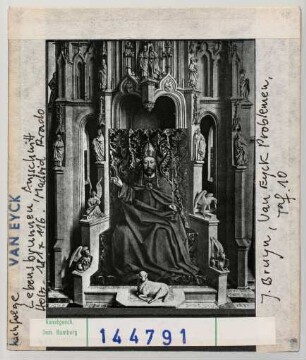 Nachfolge VAN EYCK
Lebensbrunnen, Ausschnitt
Holz. 181 x 116. Madrid Prado
J. Bruyn, Van Eyck Problemen,
Taf. 10
Kunstgesch.
Sem. Hamburg
144791